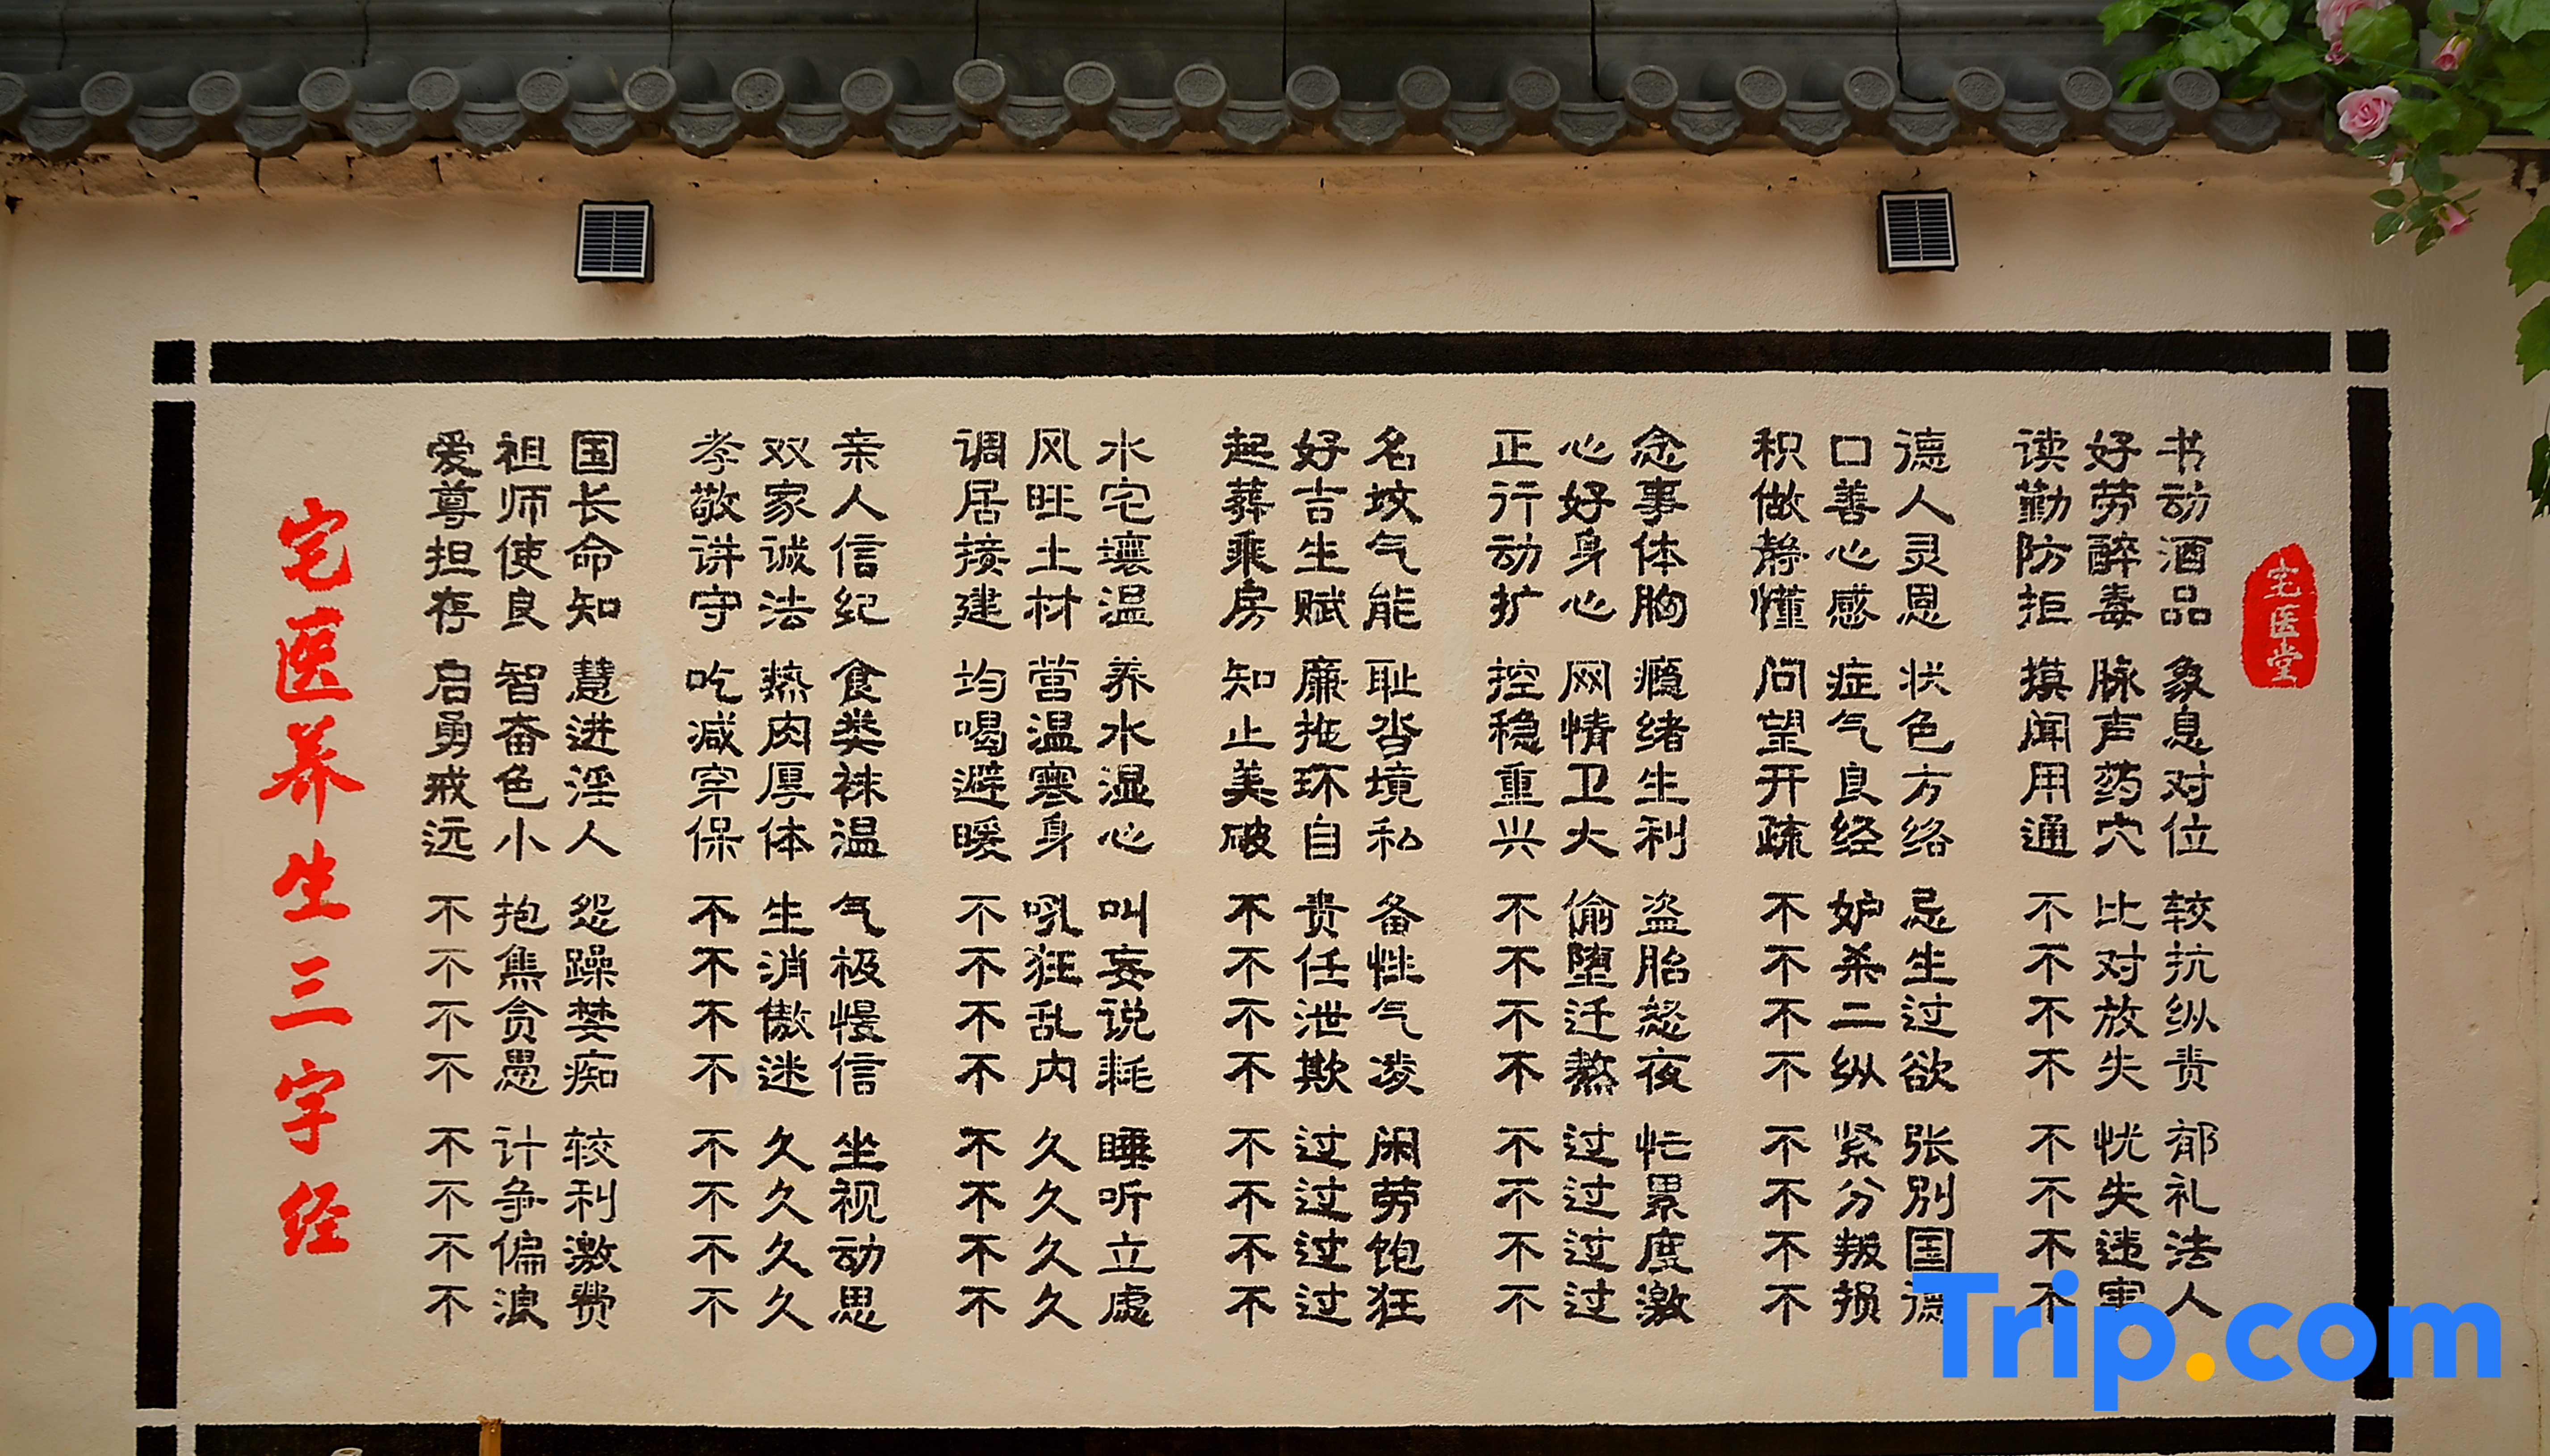 宅医养生三字经
爱祖国 孝双亲 调风水 起好名 正心念 积口德 读好书
尊师长 敬家人 居旺宅 葬吉坟 行好事 做善人 勤劳动
担使命 讲诚信 接土壤 乘生气 动身体 静心灵 防醉酒
存良知 守法纪 建材温 房赋能 扩心胸 懂感恩 拒毒品
启智慧 吃热食 均营养 知廉耻 控网瘾 问症状 摸脉象
勇奋进 减肉类 喝温水 止拖沓 稳情绪 望气色 闻声息
戒色淫 穿厚袜 避寒湿 美环境 重卫生 开良方 用药对
远小人 保体温 暖身心 破自私 兴大利 疏经络 通穴位
不抱怨 不生气 不吼叫 不责备 不偷盗 不妒忌 不比较
不焦躁 不消极 不狂妄 不任性 不堕胎 不杀生 不对抗
不贪婪 不傲慢 不乱说 不泄气 不迁怒 不二过 不放纵
不愚痴 不迷信 不内耗 不欺凌 不熬夜 不纵欲 不失责
不计较 不久坐 不久睡 不过闲 不过忙 不紧张 不忧郁
不争利 不久视 不久听 不过劳 不过累 不分别 不失礼
不偏激 不久动 不久立 不过饱 不过度 不叛国 不违法
不浪费 不久思 不久虑 不过狂 不过激 不损德 不害人
宅医堂
Trip.com